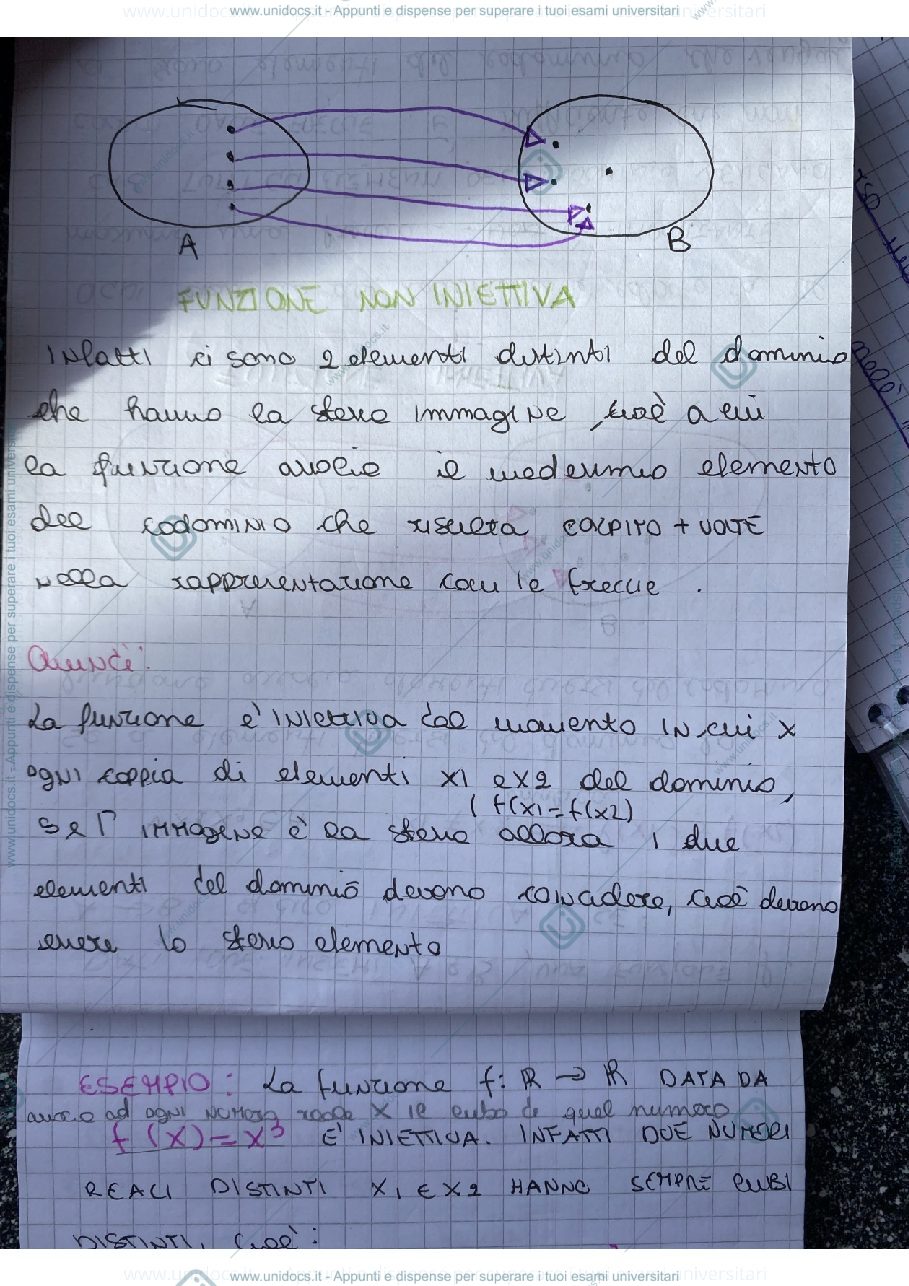 www.unidocs.it - Appunti e dispense per superare i tuoi esami universitari
A
B
FUNZIONE NON INIETTIVA
Infatti ci sono 2 elementi distinti del dominio
che hanno la stessa immagine, cioè a cui
la funzione associa il medesimo elemento
del codominio che risulta colpito + volte
nella rappresentazione con le frecce.
Quindi:
La funzione è iniettiva dal momento in cui x
ogni coppia di elementi x1 e x2 del dominio,
( f(x1 = f(x2)
se l'immagine è la stessa allora i due
elementi del dominio devono coincidere, cioè devono
essere lo stesso elemento
ESEMPIO: La funzione f: ℝ → ℝ DATA DA
associa ad ogni numero reale x il cubo di quel numero
f(x) = x³ È INIETTIVA. INFATTI DUE NUMERI
REALI DISTINTI x1 E x2 HANNO SEMPRE CUBI
DISTINTI, cioè:
www.unidocs.it - Appunti e dispense per superare i tuoi esami universitari